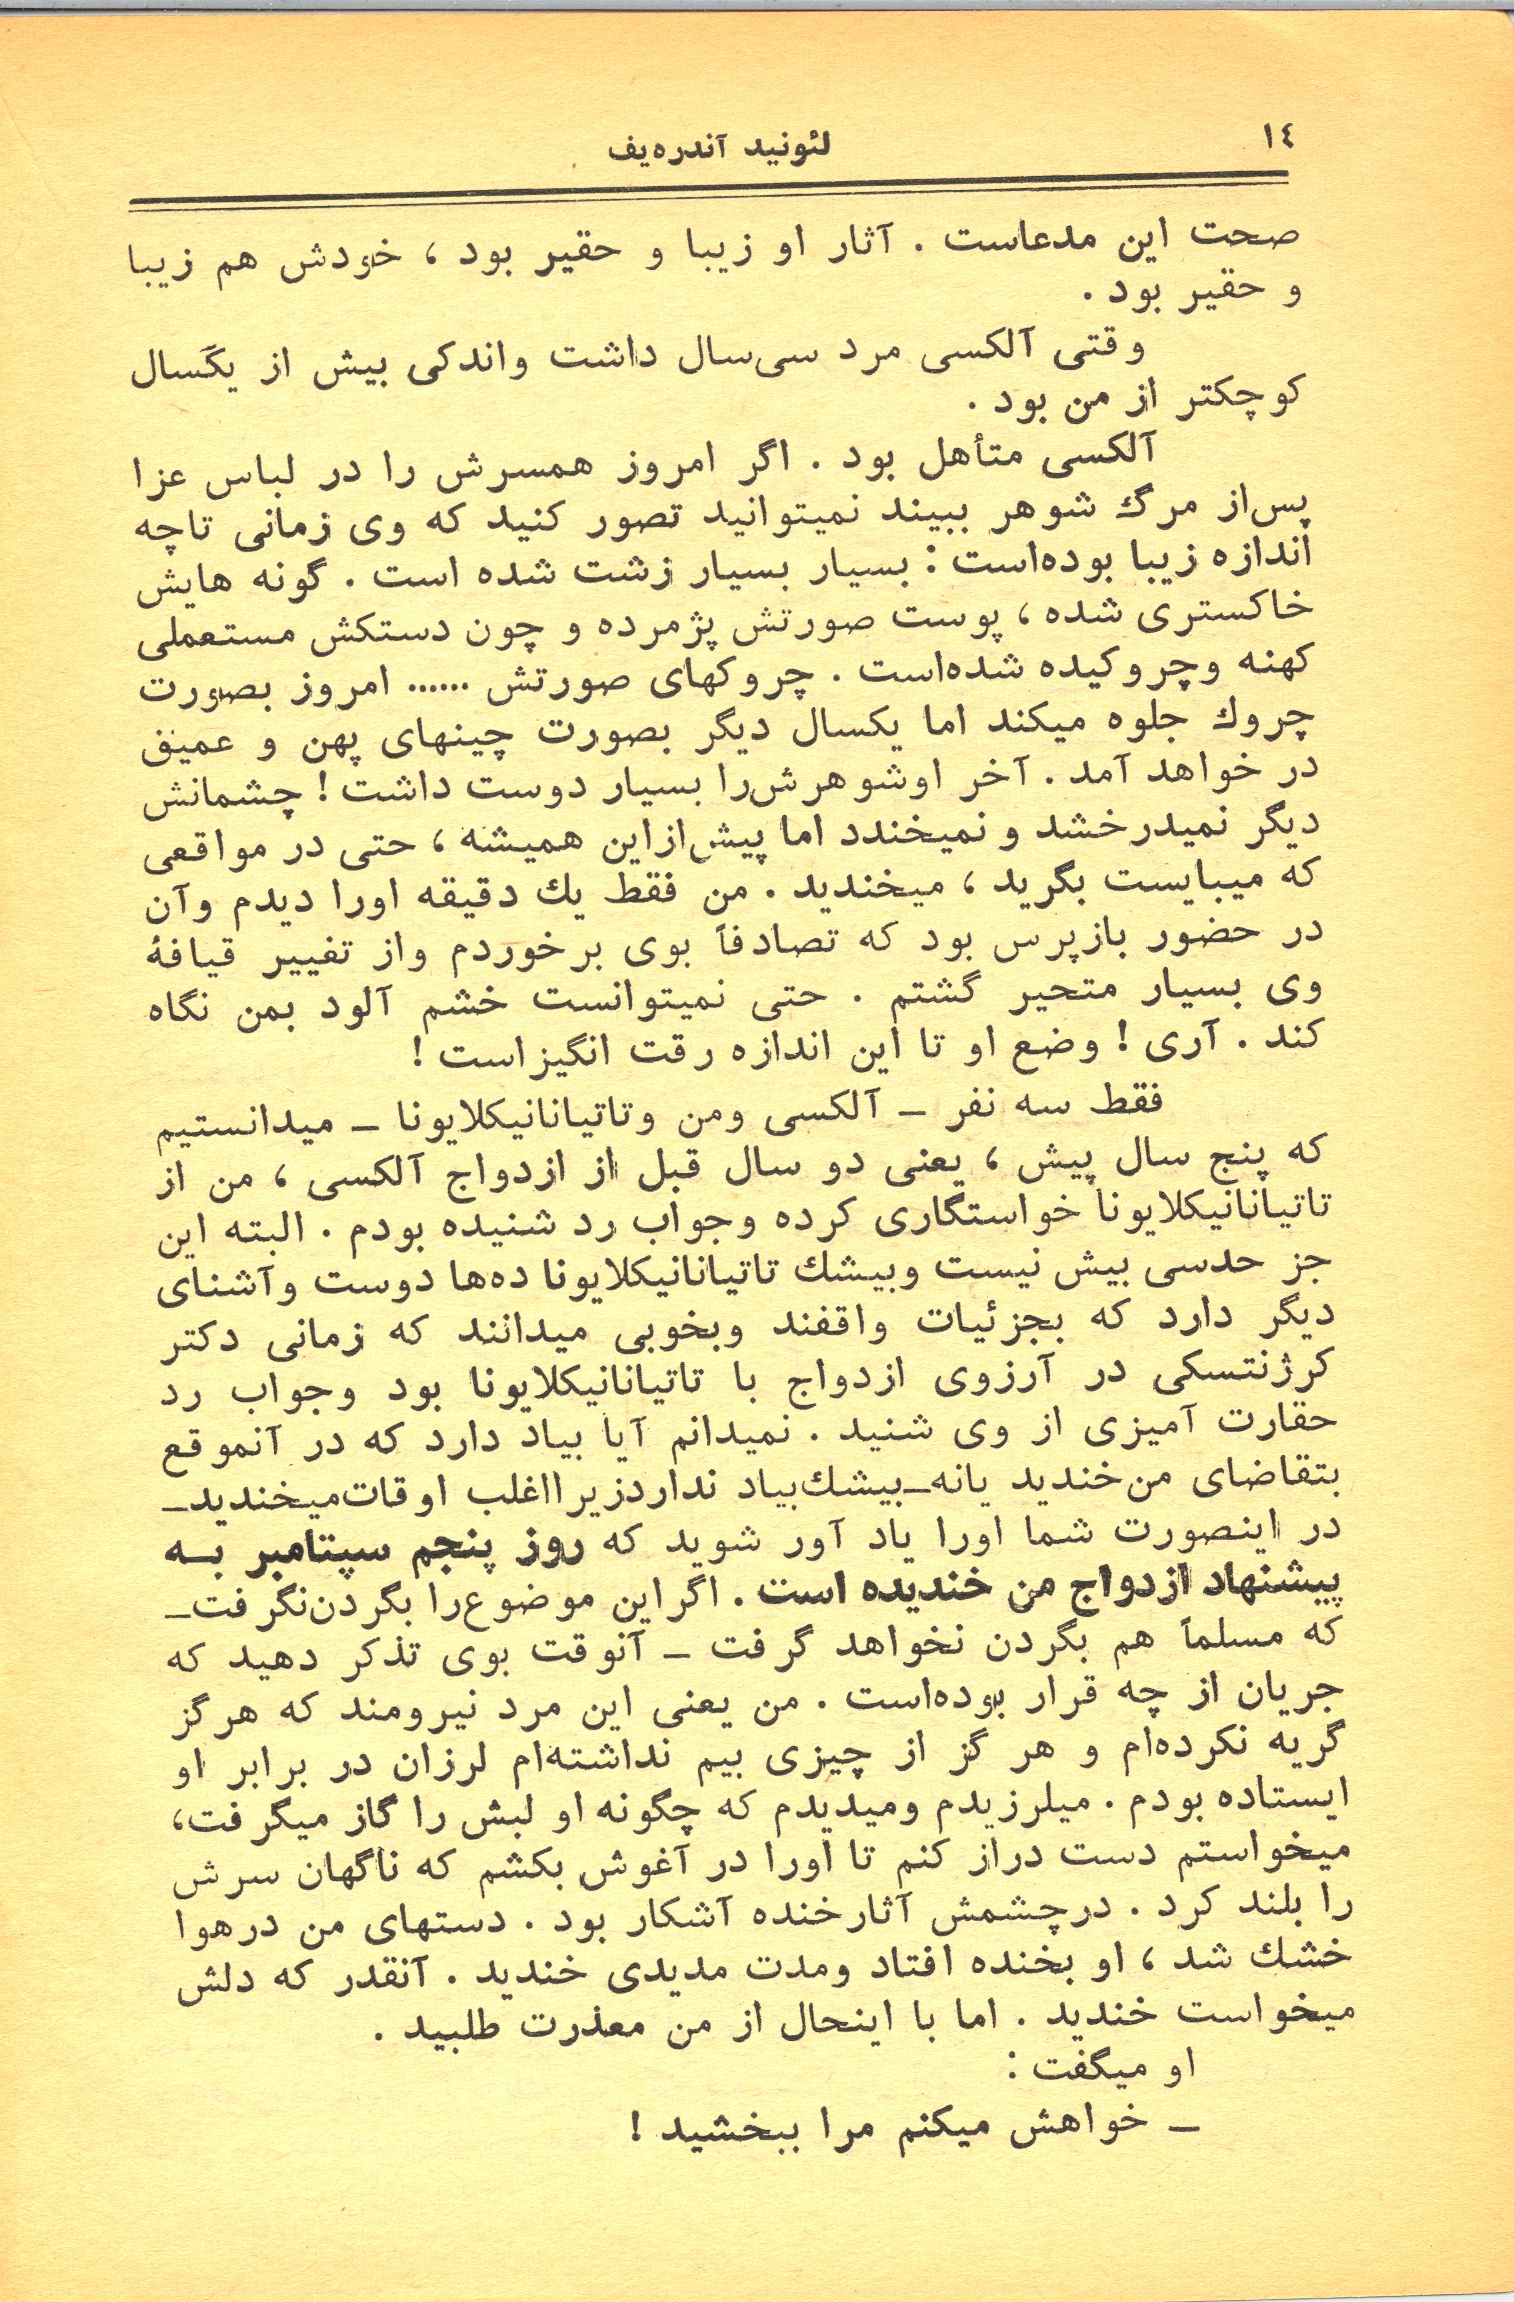 ١٤
لئونید آندره‌یف
صحت این مدعاست . آثار او زیبا و حقیر بود ، خودش هم زیبا
و حقیر بود .
وقتی آلکسی مرد سی‌سال داشت واندکی بیش از یکسال
کوچکتر از من بود .
آلکسی متأهل بود . اگر امروز همسرش را در لباس عزا
پس‌از مرگ شوهر ببیند نمیتوانید تصور کنید که وی زمانی تاچه
اندازه زیبا بوده‌است : بسیار بسیار زشت شده است . گونه هایش
خاکستری شده ، پوست صورتش پژمرده و چون دستکش مستعملی
کهنه وچروکیده شده‌است . چروکهای صورتش ...... امروز بصورت
چروك جلوه میکند اما یکسال دیگر بصورت چینهای پهن و عمیق
در خواهد آمد . آخر اوشوهرش‌را بسیار دوست داشت ! چشمانش
دیگر نمیدرخشد و نمیخندد اما پیش‌ازاین همیشه ، حتی در مواقعی
که میبایست بگرید ، میخندید . من فقط یك دقیقه اورا دیدم وآن
در حضور بازپرس بود که تصادفاً بوی برخوردم واز تغییر قیافهٔ
وی بسیار متحیر گشتم . حتی نمیتوانست خشم آلود بمن نگاه
کند . آری ! وضع او تا این اندازه رقت انگیزاست !
فقط سه نفر ـ آلکسی ومن وتاتیانانیکلایونا ـ میدانستیم
که پنج سال پیش ، یعنی دو سال قبل از ازدواج آلکسی ، من از
تاتیانانیکلایونا خواستگاری کرده وجواب رد شنیده بودم . البته این
جز حدسی بیش نیست وبیشك تاتیانانیکلایونا ده‌ها دوست وآشنای
دیگر دارد که بجزئیات واقفند وبخوبی میدانند که زمانی دکتر
کرژنتسکی در آرزوی ازدواج با تاتیانانیکلایونا بود وجواب رد
حقارت آمیزی از وی شنید . نمیدانم آیا بیاد دارد که در آنموقع
بتقاضای من‌خندید یانه‌ـ‌بیشك‌بیاد نداردزیرااغلب اوقات‌میخندید‌ـ
در اینصورت شما اورا یاد آور شوید که روز پنجم سپتامبر بـه
پیشنهاد ازدواج من خندیده است . اگراین موضوع‌را بگردن‌نگرفت‌ـ
که مسلماً هم بگردن نخواهد گرفت ـ آنوقت بوی تذکر دهید که
جریان از چه قرار بوده‌است . من یعنی این مرد نیرومند که هرگز
گریه نکرده‌ام و هر گز از چیزی بیم نداشته‌ام لرزان در برابر او
ایستاده بودم . میلرزیدم ومیدیدم که چگونه او لبش را گاز میگرفت،
میخواستم دست دراز کنم تا اورا در آغوش بکشم که ناگهان سرش
را بلند کرد . درچشمش آثارخنده آشکار بود . دستهای من درهوا
خشك شد ، او بخنده افتاد ومدت مدیدی خندید . آنقدر که دلش
میخواست خندید . اما با اینحال از من معذرت طلبید .
او میگفت :
ـ خواهش میکنم مرا ببخشید !